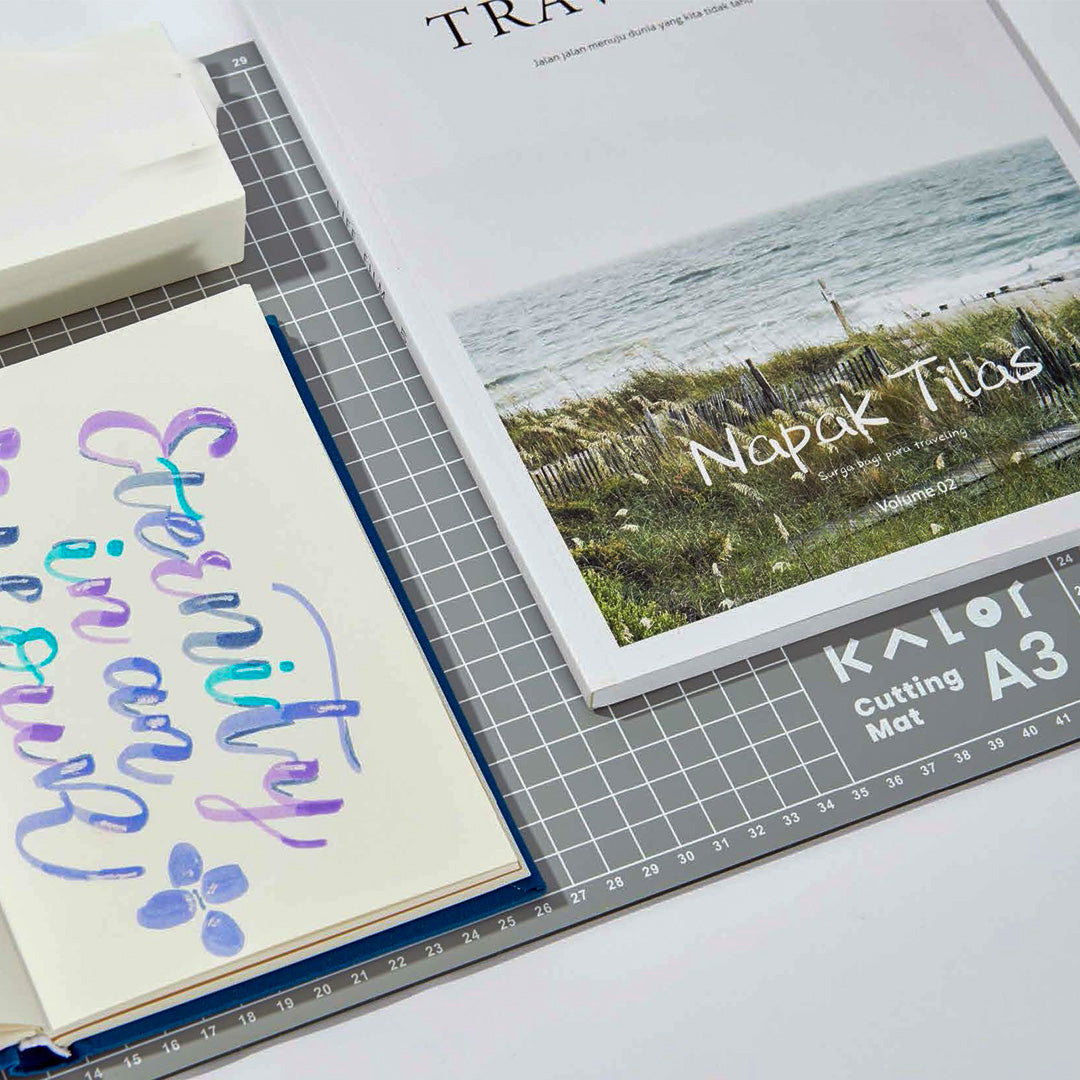 TRAV
Jalan jalan menuju dunia yang kita tidak tahu
Napak Tilas
Surga bagi para traveling
Volume 02
Eternity
in an
hour
KALOr
Cutting
Mat
A3
29
24
14 15 16 17 18 19 20 21 22 23 24 25 26 27 28 29 30 31 32 33 34 35 36 37 38 39 40 41